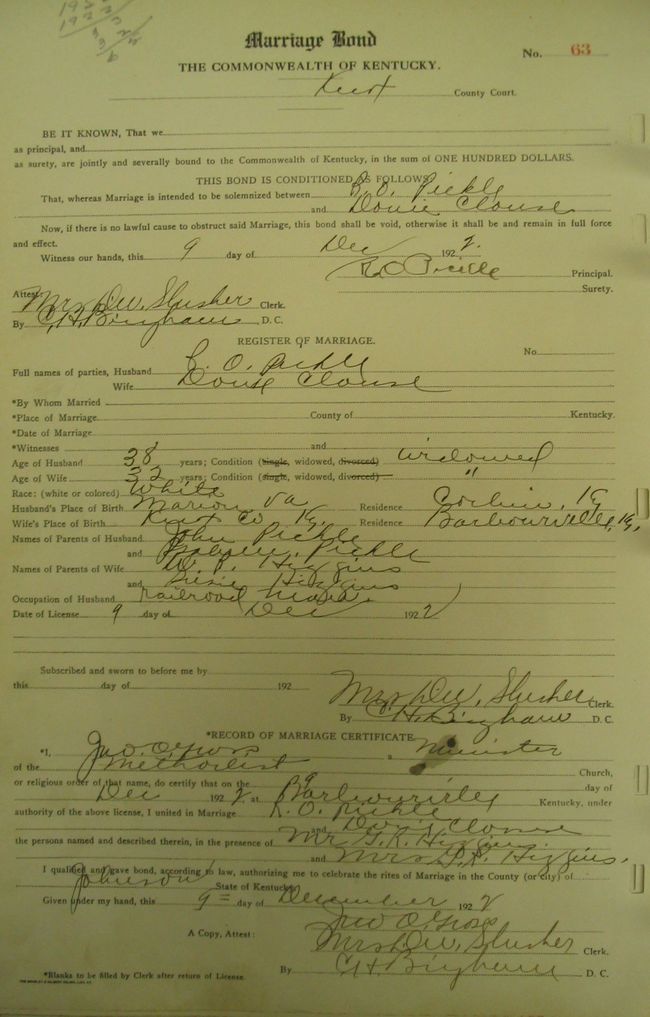 Marriage Bond
No. 63
THE COMMONWEALTH OF KENTUCKY.
Knox County Court.
BE IT KNOWN, That we
as principal, and
as surety, are jointly and severally bound to the Commonwealth of Kentucky, in the sum of ONE HUNDRED DOLLARS.
THIS BOND IS CONDITIONED AS FOLLOWS
That, whereas Marriage is intended to be solemnized between R. O. Pickle
and Dovie Clouse
Now, if there is no lawful cause to obstruct said Marriage, this bond shall be void, otherwise it shall be and remain in full force
and effect.
Witness our hands, this 9 day of Dec 1922.
R O Pickle Principal.
Surety.
Attest: Mrs D W. Slusher Clerk.
By C. H. Bingham, D. C.
REGISTER OF MARRIAGE.
No
Full names of parties, Husband R. O. Pickle
Wife Dovie Clouse
*By Whom Married
*Place of Marriage County of Kentucky.
*Date of Marriage
*Witnesses and
Age of Husband 38 years; Condition (single, widowed, divorced) widowed
Age of Wife 32 years; Condition (single, widowed, divorced) "
Race: (white or colored) White
Husband's Place of Birth Marion Va Residence Corbin, Ky
Wife's Place of Birth Knox Co Ky. Residence Barbourville, Ky.
Names of Parents of Husband John Pickle
and Pickle
Names of Parents of Wife Higgins
and Susie Higgins
Occupation of Husband railroad
Date of License 9 day of Dec 1922
Subscribed and sworn to before me by
this day of 192
Mrs D W. Slusher Clerk.
By C. H. Bingham D. C.
*RECORD OF MARRIAGE CERTIFICATE
*I, Jno. O. Gross a Minister
of the Methodist Church,
or religious order of that name, do certify that on the 9 day of
Dec 1922 at Barbourville Kentucky, under
authority of the above license, I united in Marriage R. O. Pickle
and Dovie Clouse
the persons named and described therein, in the presence of Mr G. R. Higgins
and Mrs G. R. Higgins.
I qualified and gave bond, according to law, authorizing me to celebrate the rites of Marriage in the County (or city) of
Johnson State of Kentucky
Given under my hand, this 9 day of December 1922
Jno O. Gross
A Copy, Attest: Mrs D W. Slusher Clerk.
By C. H. Bingham D. C.
*Blanks to be filled by Clerk after return of License.